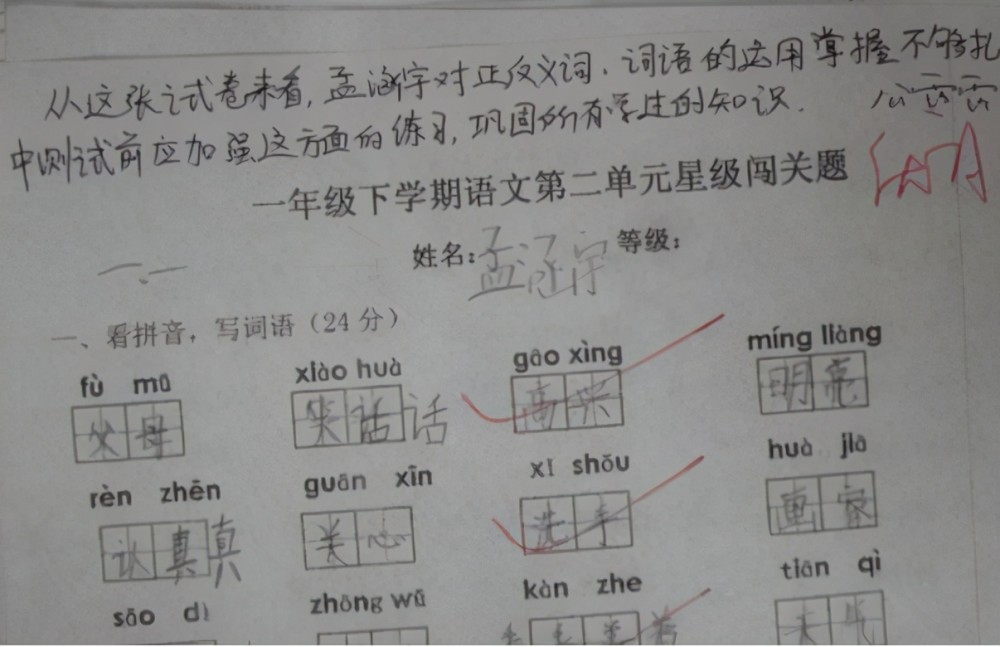 从这张试卷来看,孟涵宇对正反义词、词语的运用掌握不够扎
中测试前应加强这方面的练习,巩固所有学过的知识.
一年级下学期语文第二单元星级闯关题
姓名:孟涵宇 等级:
一、看拼音,写词语(24分)
fù mǔ xiào huà gāo xìng míng liàng
父母 笑话 话 高兴 明亮
rèn zhēn guān xīn xǐ shǒu huà jiā
认真 真 关心 洗手 画家
sǎo dì zhōng wǔ kàn zhe tiān qì
天气